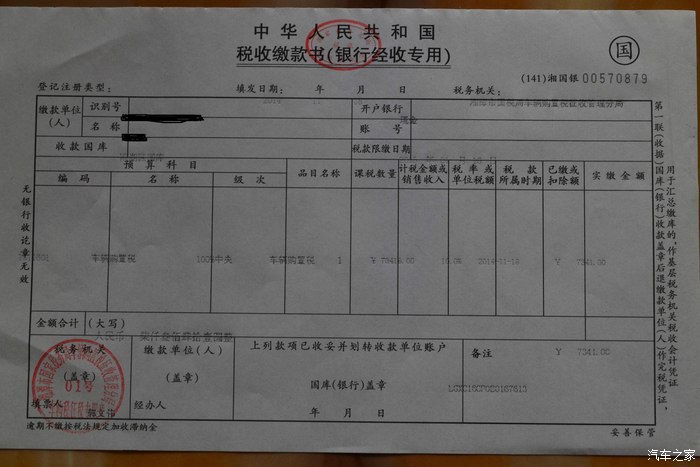 中华人民共和国
税收缴款书(银行经收专用)
国
(141)湘国银 00570879
登记注册类型: 填发日期: 年 月 日 税务机关:
缴款单位(人) 识别号 开户银行
名称 账号 现金
收款国库 税款限缴日期
预算科目
编码 名称 级次 品目名称 课税数量 计税金额或销售收入 税率或单位税额 税款所属时期 已缴或扣除额 实缴金额
车辆购置税 100%中央 车辆购置税 1 2014-11-18 ¥ 7341.00
金额合计 (大写) 人民币 柒仟叁佰肆拾壹圆整
¥ 7341.00
税务机关 (盖章) 填票人
缴款单位(人) (盖章) 经办人
上列款项已收妥并划转收款单位账户
国库(银行)盖章
年 月 日
备注
01号
逾期不缴按税法规定加收滞纳金
妥善保管
无银行收讫章无效
第一联(收据)国库(银行)收款盖章后退缴款单位(人)作完税凭证,
用于汇总缴库的,作基层税务机关税收会计凭证
汽车之家